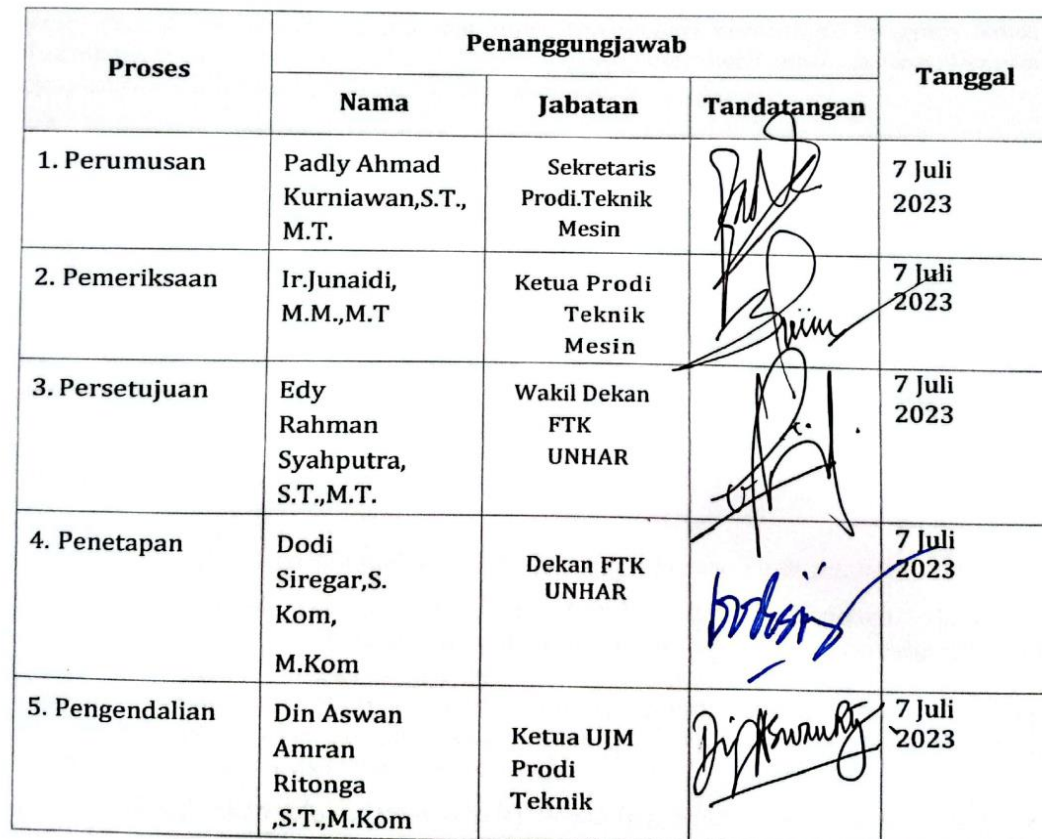 Proses
Penanggungjawab
Tanggal
Nama
Jabatan
Tandatangan
1. Perumusan
Padly Ahmad
Kurniawan,S.T.,
M.T.
Sekretaris
Prodi.Teknik
Mesin
7 Juli
2023
2. Pemeriksaan
Ir.Junaidi,
M.M.,M.T
Ketua Prodi
Teknik
Mesin
7 Juli
2023
3. Persetujuan
Edy
Rahman
Syahputra,
S.T.,M.T.
Wakil Dekan
FTK
UNHAR
7 Juli
2023
4. Penetapan
Dodi
Siregar,S.
Kom,
M.Kom
Dekan FTK
UNHAR
7 Juli
2023
5. Pengendalian
Din Aswan
Amran
Ritonga
,S.T.,M.Kom
Ketua UJM
Prodi
Teknik
7 Juli
2023